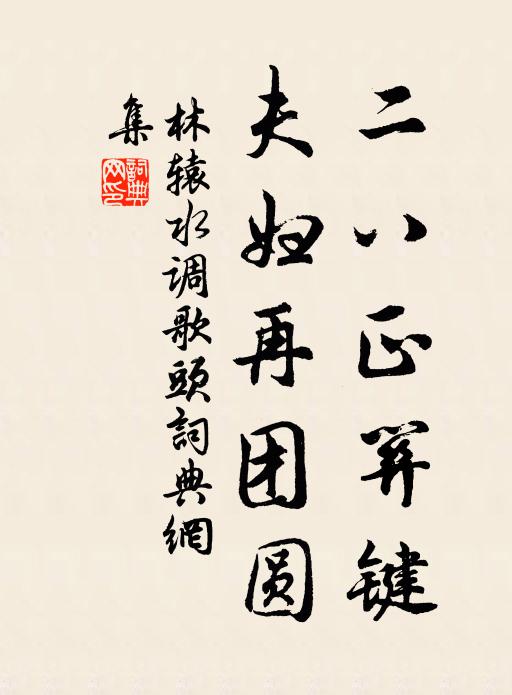 二八正关键
夫妇再团圆
林辕水调歌頭詞典網
集
詞典網印